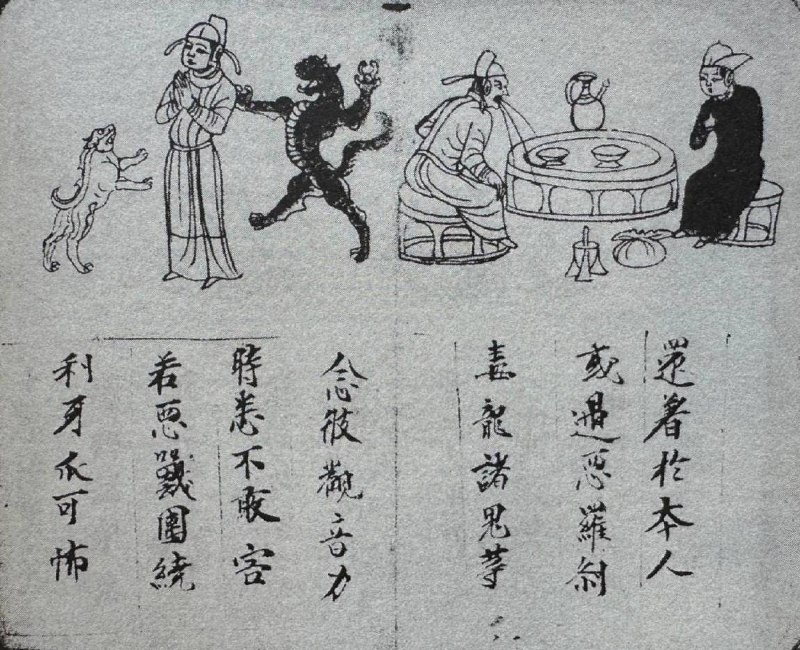 還著於本人
或遇惡羅刹
毒龍諸鬼等
念彼觀音力
時悉不敢害
若惡獸圍繞
利牙爪可怖